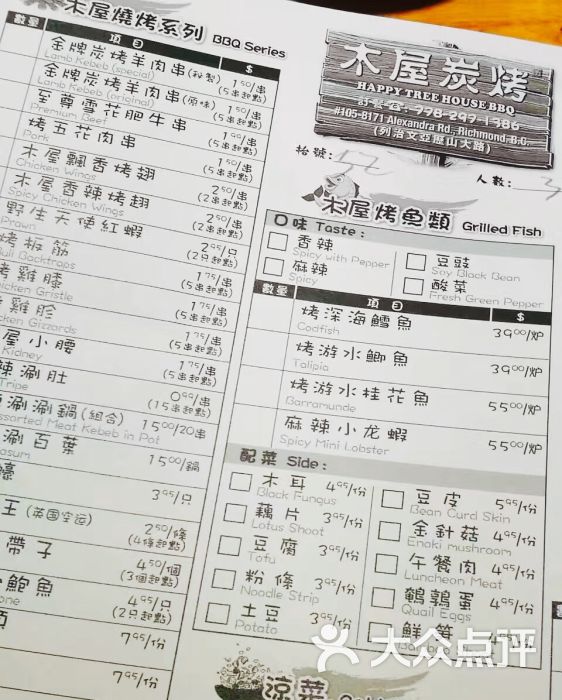 木屋燒烤系列 BBQ Series
數量 項目 $
金牌炭烤羊肉串(秘製) 1.50/串
Lamb Kebeb (special) (5串起點)
金牌炭烤羊肉串(原味) 1.50/串
Lamb Kebeb (original) (5串起點)
至尊雪花肥牛串 1.99/串
Premium Beef (5串起點)
烤五花肉串 1.75/串
Pork (5串起點)
木屋飄香烤翅 2.50/串
Chicken Wings (2串起點)
木屋香辣烤翅 2.50/串
Spicy Chicken Wings (2串起點)
野生天使紅蝦 2.95/只
Prawn (2只起點)
烤板筋 1.75/串
Bull Backtraps (5串起點)
烤雞膝 1.75/串
Chicken Gristle (5串起點)
雞胗 1.75/串
Chicken Gizzards (5串起點)
屋小腰 1.75/串
Kidney (5串起點)
辣涮肚 0.99/串
Tripe (15串起點)
涮涮鍋(組合) 15.00/20串
Assorted Meat Kebeb in Pot
涮百葉 15.00/鍋
asum
蠔 3.95/只
王(英国空运) 2.50/條
(4條起點)
帶子 4.50/個
(3個起點)
鮑魚 4.95/只
one (2只起點)
7.95/份
7.95/份
木屋炭烤
HAPPY TREE HOUSE BBQ
訂餐: 778-297-1386
#105-8171 Alexandra Rd., Richmond, B.C.
(列治文亞歷山大路)
抬號: 人數:
木屋烤魚類 Grilled Fish
口味 Taste:
香辣 豆豉
Spicy with Pepper Soy Black Bean
麻辣 酸菜
Spicy Fresh Green Pepper
數量 項目 $
烤深海鱈魚 39.00/炉
Codfish
烤游水鯽魚 39.00/炉
Talipia
烤游水桂花魚 55.00/炉
Barramunde
麻辣小龙蝦 55.00/炉
Spicy Mini Lobster
配菜 Side:
木耳 4.95/份 豆皮 5.95/份
Black Fungus Bean Curd Skin
藕片 3.95/份 金針菇 4.95/份
Lotus Shoot Enoki mushroom
豆腐 3.95/份 午餐肉 4.95/份
Tofu Luncheon Meat
粉條 3.95/份 鵪鶉蛋 4.95/份
Noodle Strip Quail Eggs
土豆 3.95/份 鮮筍
Potato
涼菜
大众点评